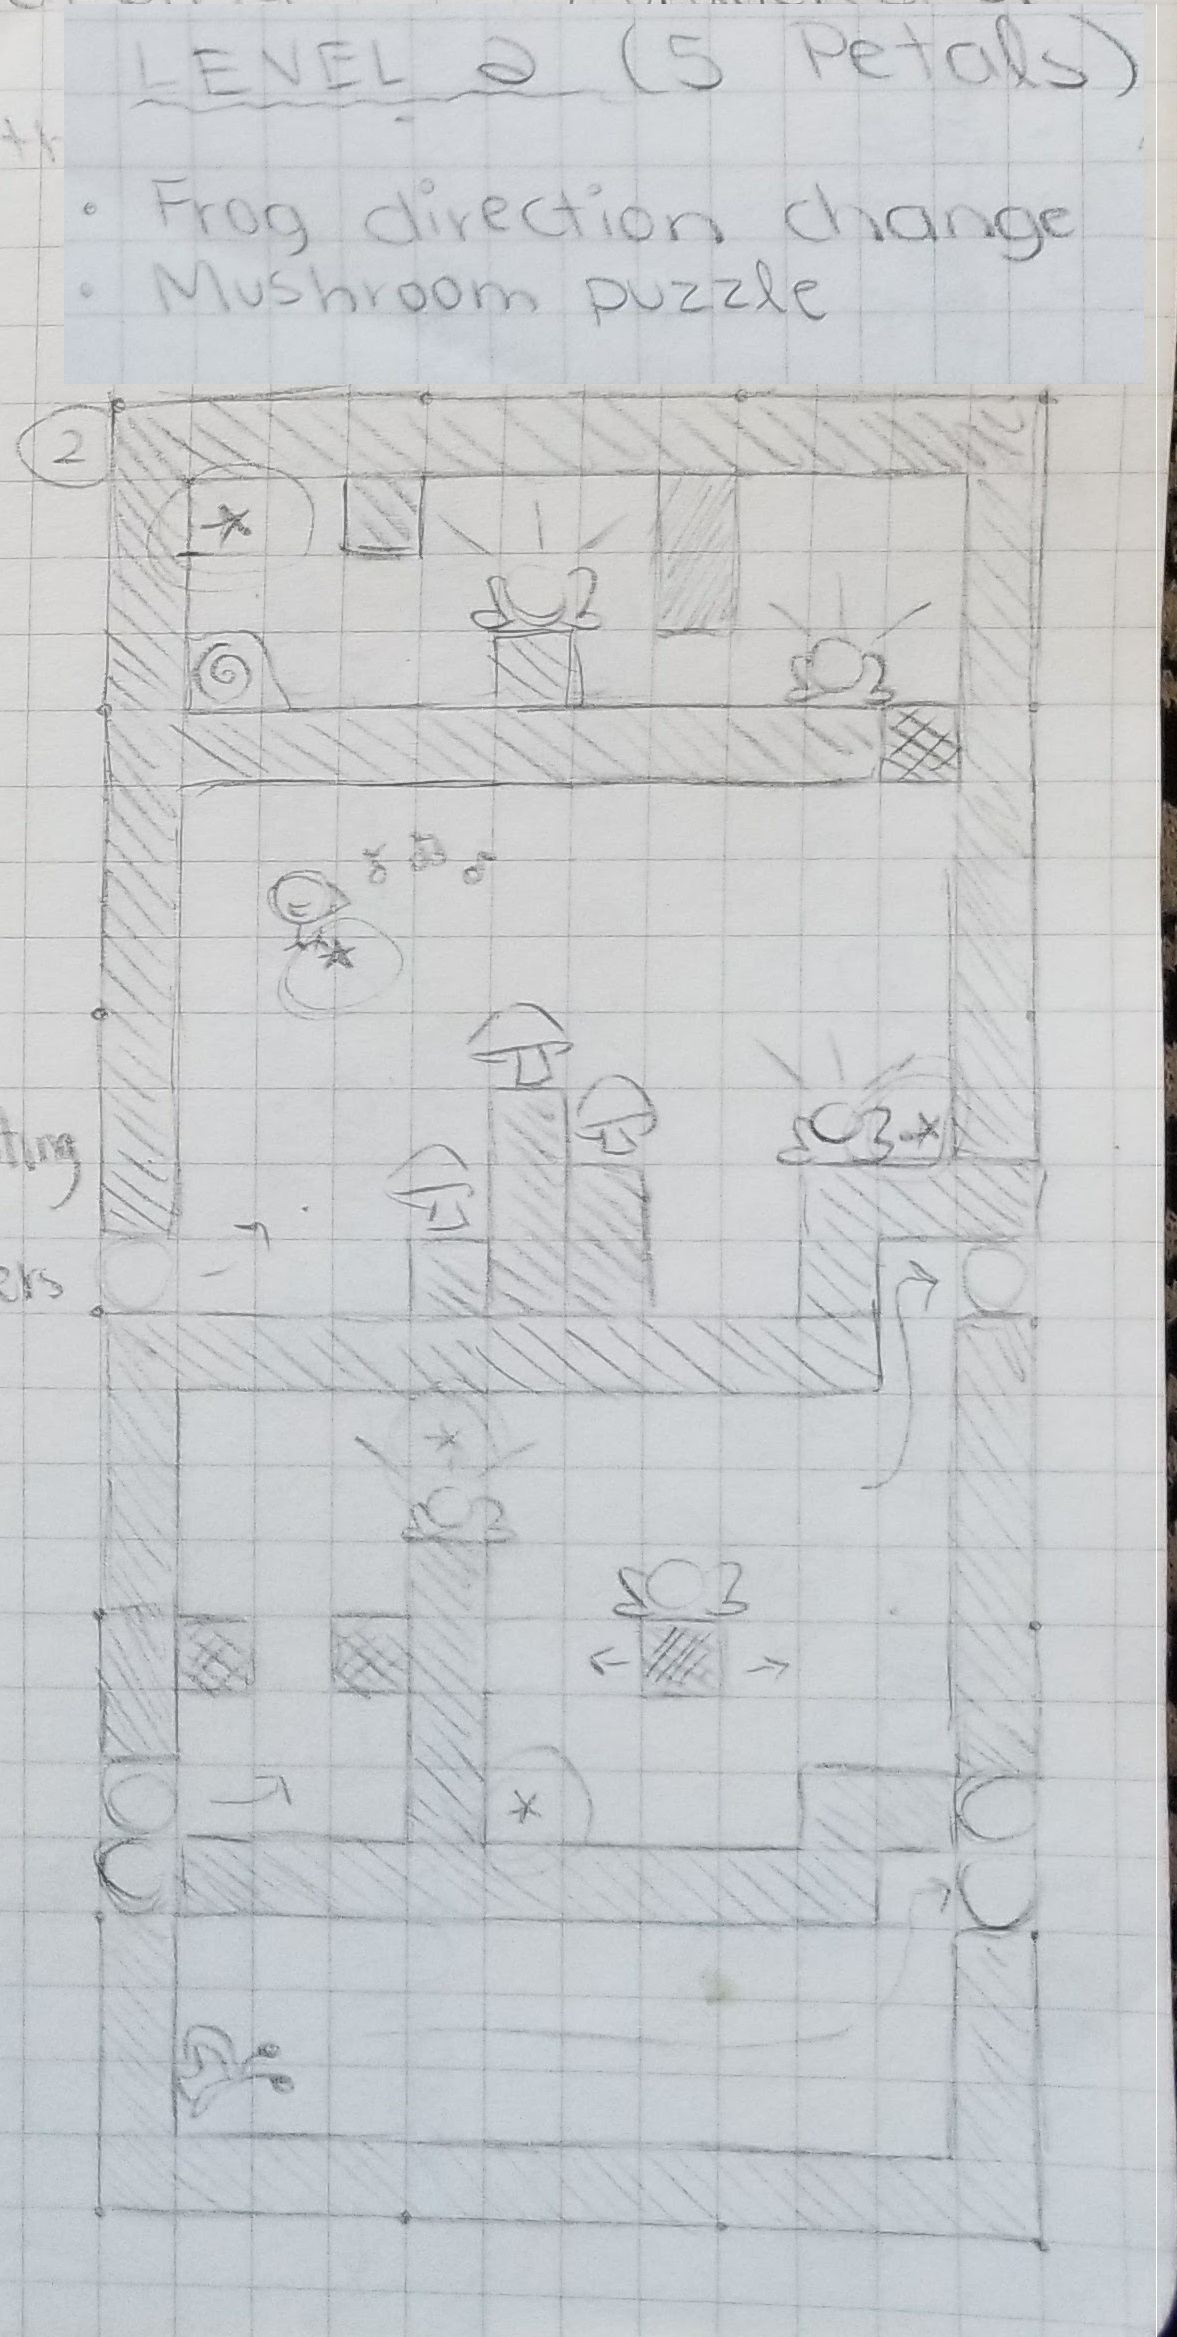 LEVEL 2 (5 Petals)
• Frog direction change
• Mushroom puzzle
2
ting
ers